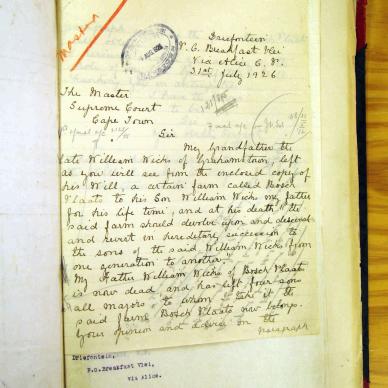 Master
Driefontein
P.O. Breakfast Vlei
Via Alice C.P.
31st July 1926
The Master
Supreme Court
Cape Town
Sir
My Grandfather the
late William Wicks of Grahamstown, left
as you will see from the enclosed copy of
his Will, a certain farm called Bosch
Plaats to his Son William Wicks my father
for his life time, and at his death "the
said farm should devolve upon and descend
and revert in hereditary succession to
the sons of the said William Wicks from
one generation to another."
My Father William Wicks of Bosch Plaats
is now dead and has left four sons
all majors to whom I take it the
said farm Bosch Plaats now belongs.
Your opinion and advice on the
paragraph
Driefontein,
P.O. Breakfast Vlei,
via Alice.